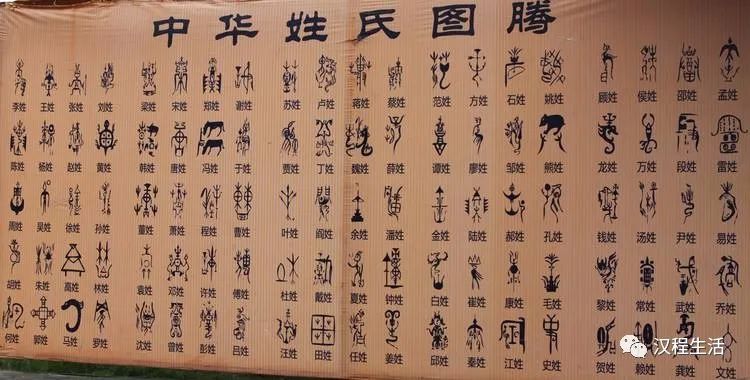 中华姓氏图腾
李姓 王姓 张姓 刘姓 梁姓 宋姓 郑姓 谢姓 苏姓 卢姓 蒋姓 蔡姓 范姓 方姓 石姓 姚姓 顾姓 侯姓 邵姓 孟姓
陈姓 杨姓 赵姓 黄姓 韩姓 唐姓 冯姓 于姓 贾姓 丁姓 魏姓 薛姓 谭姓 廖姓 邹姓 熊姓 龙姓 万姓 段姓 雷姓
周姓 吴姓 徐姓 孙姓 董姓 萧姓 程姓 曹姓 叶姓 阎姓 余姓 潘姓 金姓 陆姓 郝姓 孔姓 钱姓 汤姓 尹姓 易姓
胡姓 朱姓 高姓 林姓 袁姓 邓姓 许姓 傅姓 杜姓 戴姓 夏姓 钟姓 白姓 崔姓 康姓 毛姓 黎姓 常姓 武姓 乔姓
何姓 郭姓 马姓 罗姓 沈姓 曾姓 彭姓 吕姓 汪姓 田姓 任姓 姜姓 邱姓 秦姓 江姓 史姓 贺姓 赖姓 龚姓 文姓
汉程生活